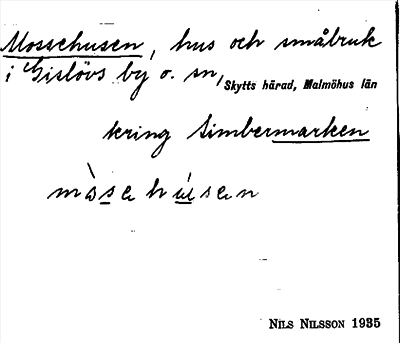 Mossehusen, hus och småbruk
i Gislövs by o. sn, Skytts härad, Malmöhus län
kring Simbermarken
mòsehúsen
NILS NILSSON 1935